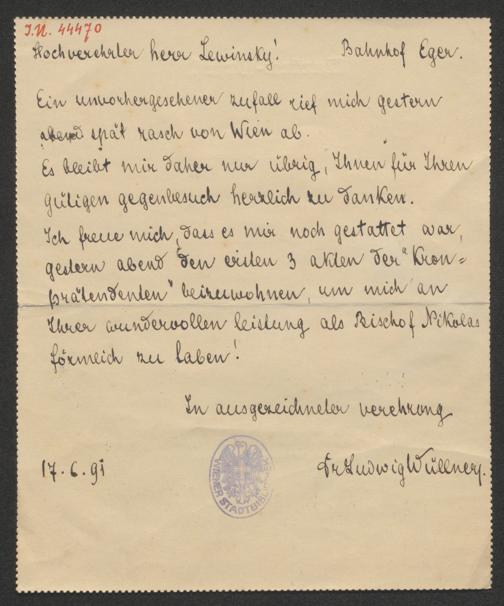 I.N. 44470
Hochverehrter herr Lewinsky! Bahnhof Eger.
Ein unvorhergesehener zufall rief mich gestern
abend spät rasch von Wien ab.
Es bleibt mir daher nur übrig, Ihnen für Ihren
gütigen gegenbesuch herzlich zu danken.
Ich freue mich, dass es mir noch gestattet war,
gestern abend den ersten 3 akten der "Kron=
prätendenten" beizuwohnen, um mich an
Ihrer wundervollen leistung als Bischof Nikolas
förmlich zu laben!
In ausgezeichneter verehrung
17.6.91 Dr Ludwig Wüllner.
WIENER STADTBIBL